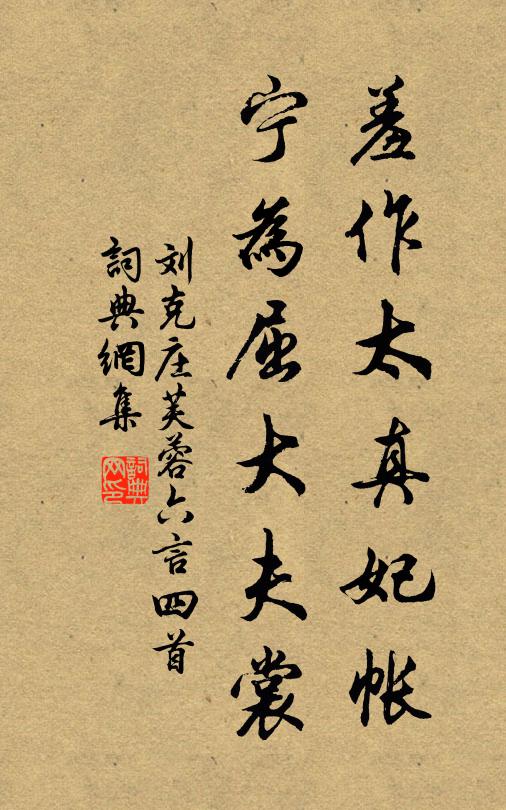 羞作太真妃帐
宁為屈大夫裳
刘克庄芙蓉六言四首
詞典網集
詞典
网印